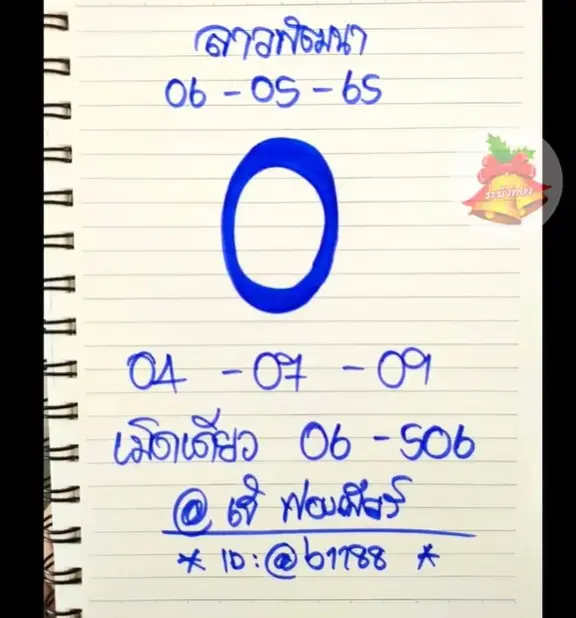 ลาวพัฒนา
06 - 05 - 65
0
04 - 07 - 09
เม็ดเดียว 06 - 506
@ เจ๊ ฟองเบียร์
* ID:@b1788 *
ระฆังทอง